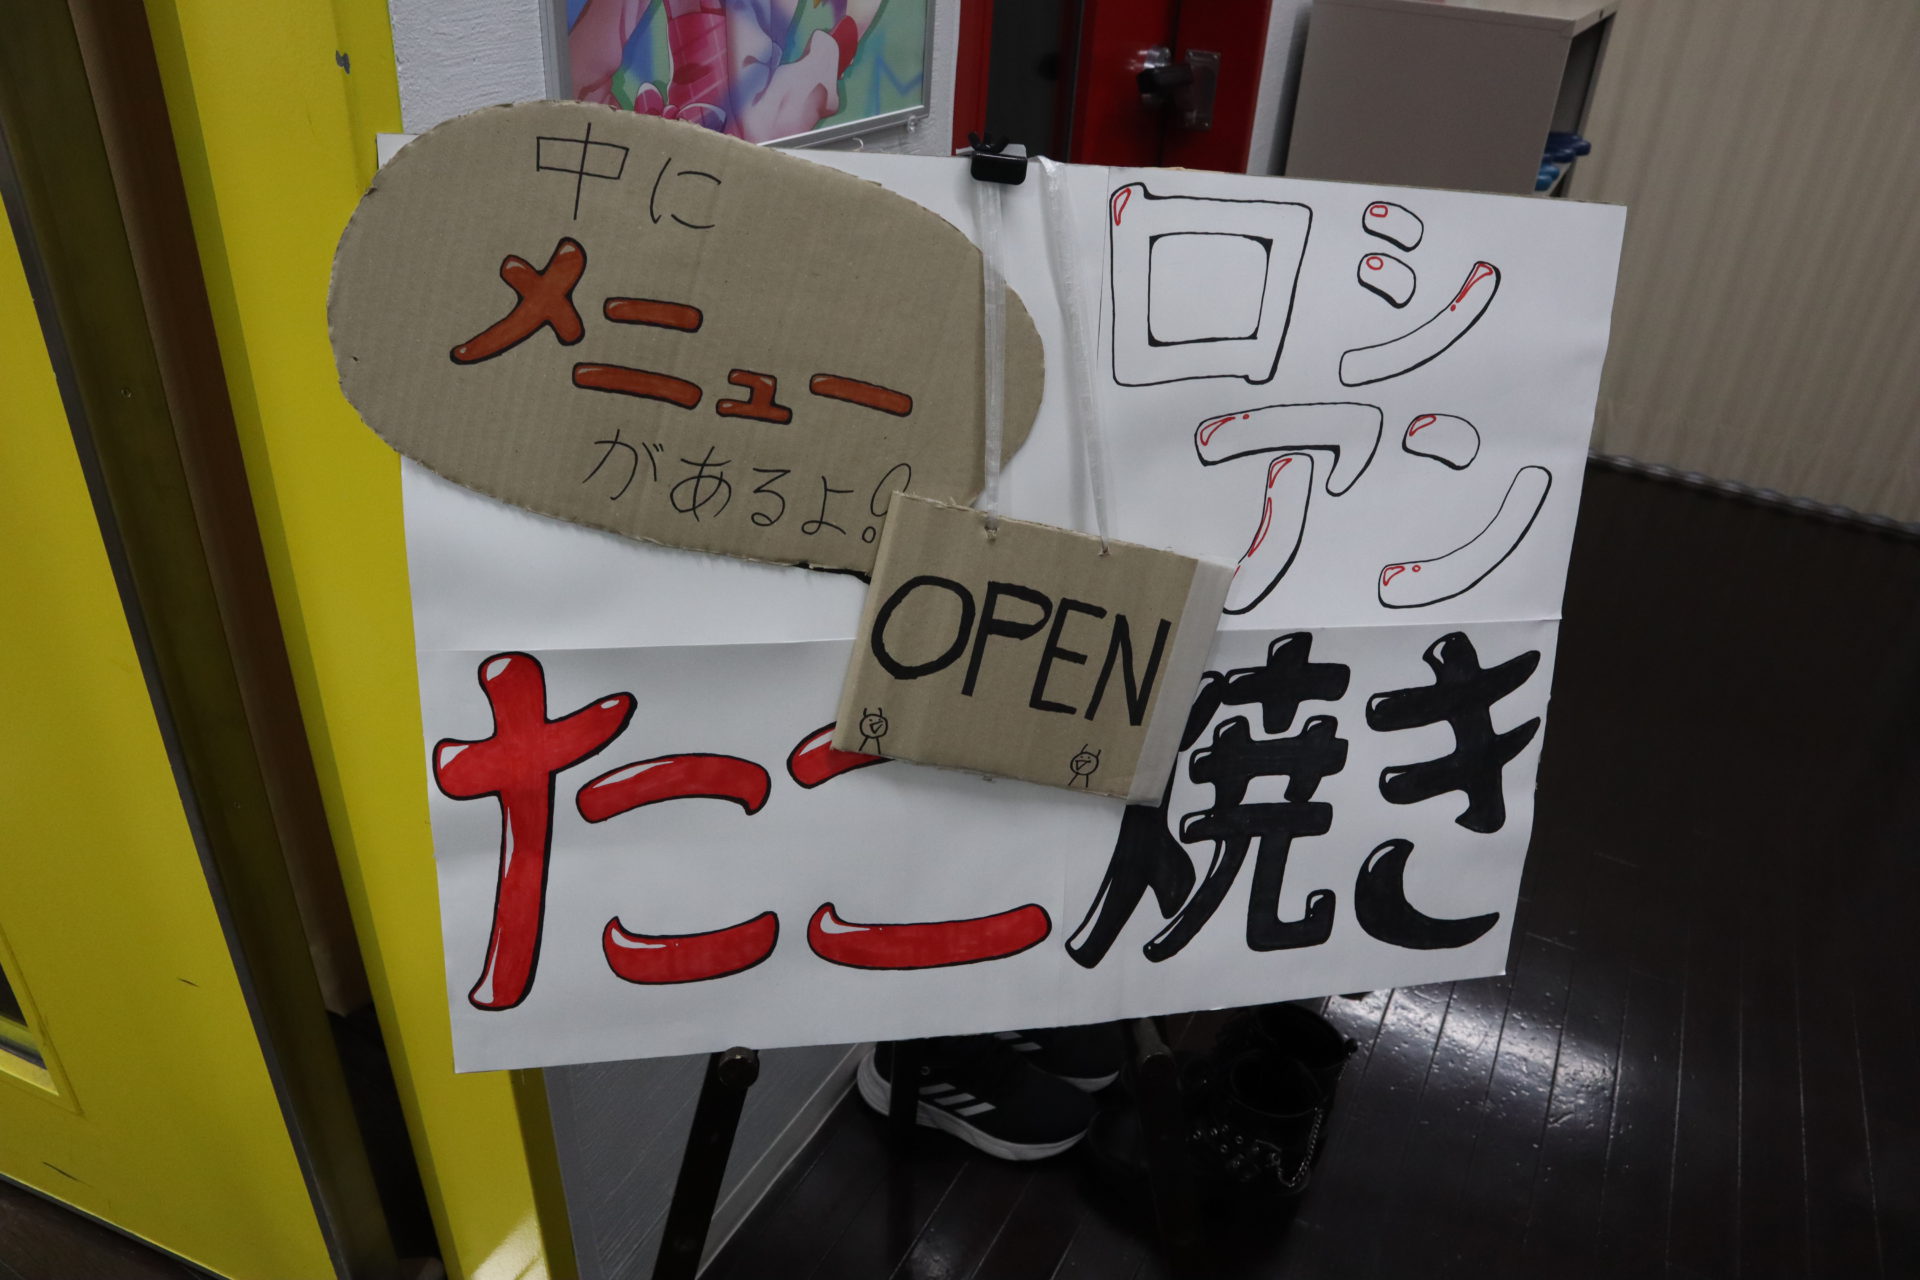 中に
メニュー
があるよ!
ロシ
アン
たこ焼き
OPEN